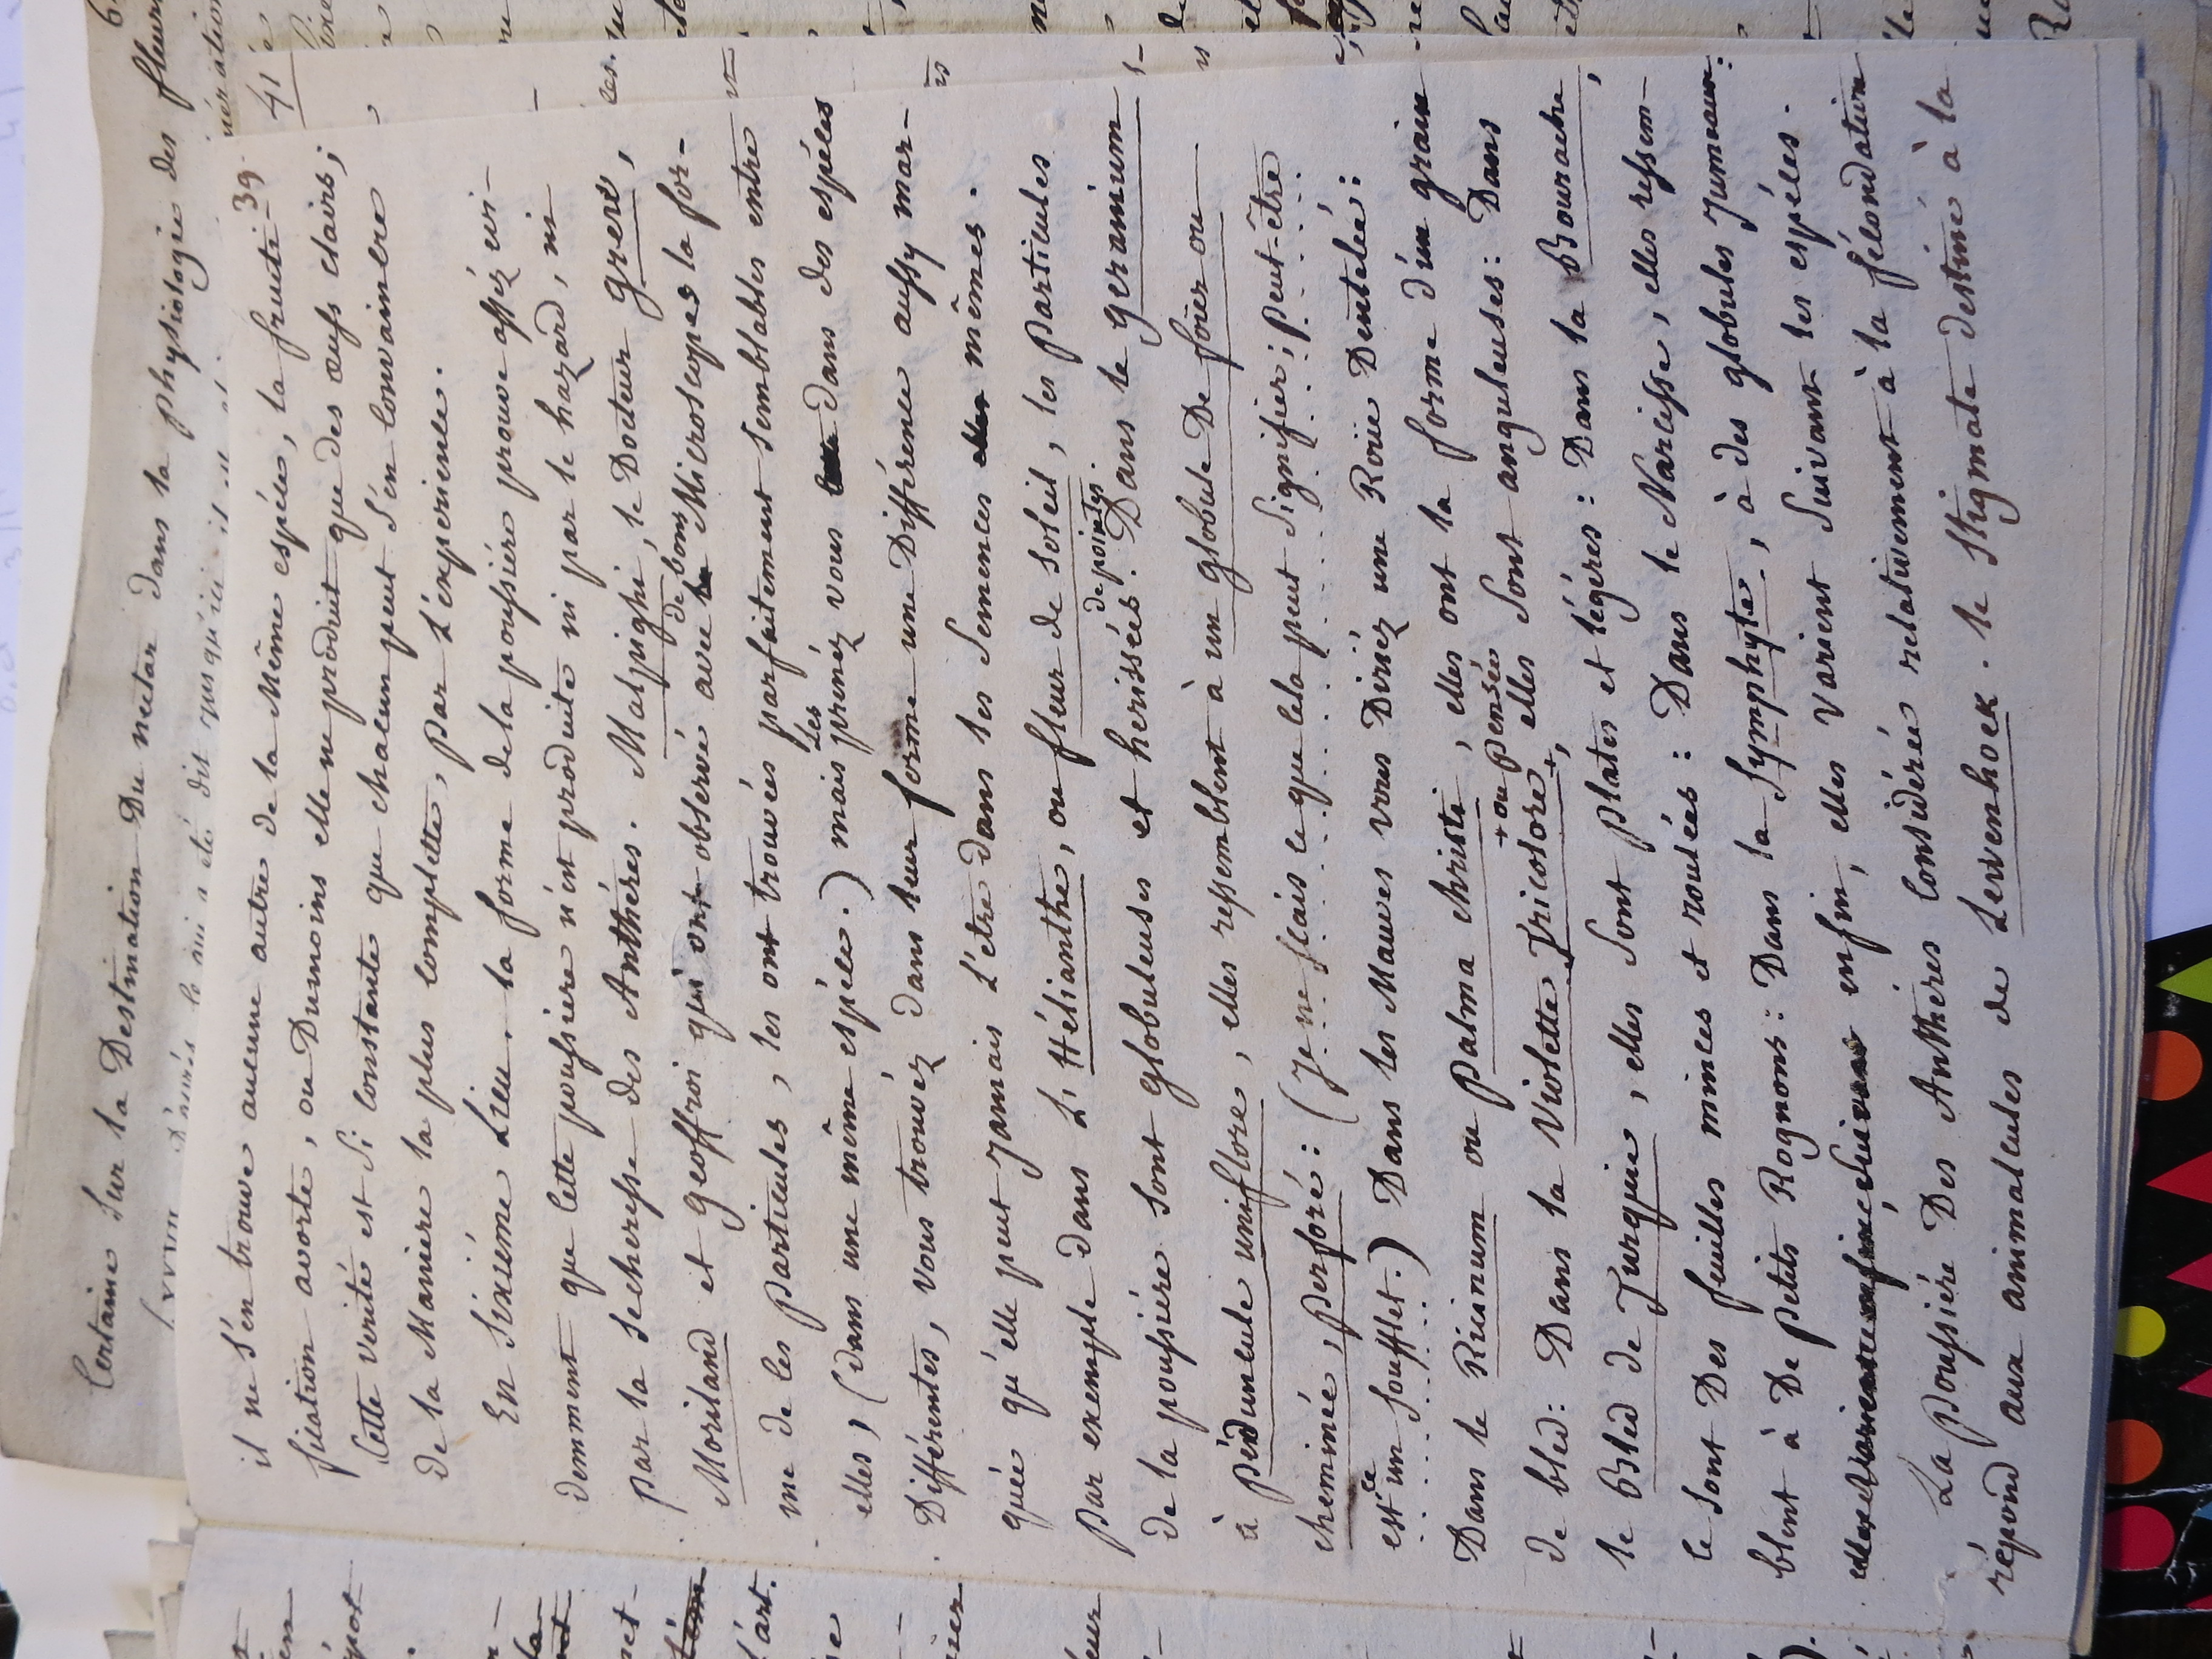 Certaine Sur la Destination Du nectar dans la physiologie des fleurs
dit jusqu'ici
39.
il ne s'en trouve aucune autre de la Même espéce, la fructi-
fication avorte, ou Dumoins elle ne produit que des œufs clairs;
Cette verité est si constante que chacun peut s'en Convaincre
de la Maniere la plus complette, par L'experience.
En Sixiéme Lieu. la forme de la poussiére prouve assez evi-
demment que cette poussiere n'est produite ni par le hazard, ni
par la secheresse des Anthéres. Malpighi, le Docteur Grew,
Morland et Geoffroi qui ont observé avec de bons Microscopes la for-
me de ces Particules, les ont trouvées parfaitement semblables entre
elles, (dans une même espéce.) mais prenéz vous Les dans des espéces
Différentes, vous trouvéz dans leur forme une Différence aussy mar-
quée qu'elle peut Jamais L'etre dans les Semences mêmes.
Par exemple dans L'Hélianthe, ou fleur de Soleil, les Particules
de la poussiére sont globuleuses et herissées de pointes. Dans le geranium
à péduncule uniflore, elles ressemblent à un globule De foïer ou
cheminée, perforé: (Je ne scais ce que cela peut Signifier; peut-être
est ce un Soufflet.) Dans les Mauves vous Diriéz une Roüe Dentelée:
Dans le Ricinum ou Palma christi, elles ont la forme d'un grain
de bled: Dans la Violette Tricolore +, + ou pensée elles Sont anguleuses: Dans
le Bled de Turquie, elles Sont plates et légéres: Dans la Bourache,
ce Sont Des feuilles minces et roulées: Dans le Narcisse, elles ressem-
blent à De petits Rognons: Dans la Symphyte, à des globules Jumeaux:
enfin, elles varient Suivant les espéces.
La Poussiére Des Anthéres Considérée relativement à la fécondation
répond aux animalcules de Lewenhoek. le Stigmate destiné à la